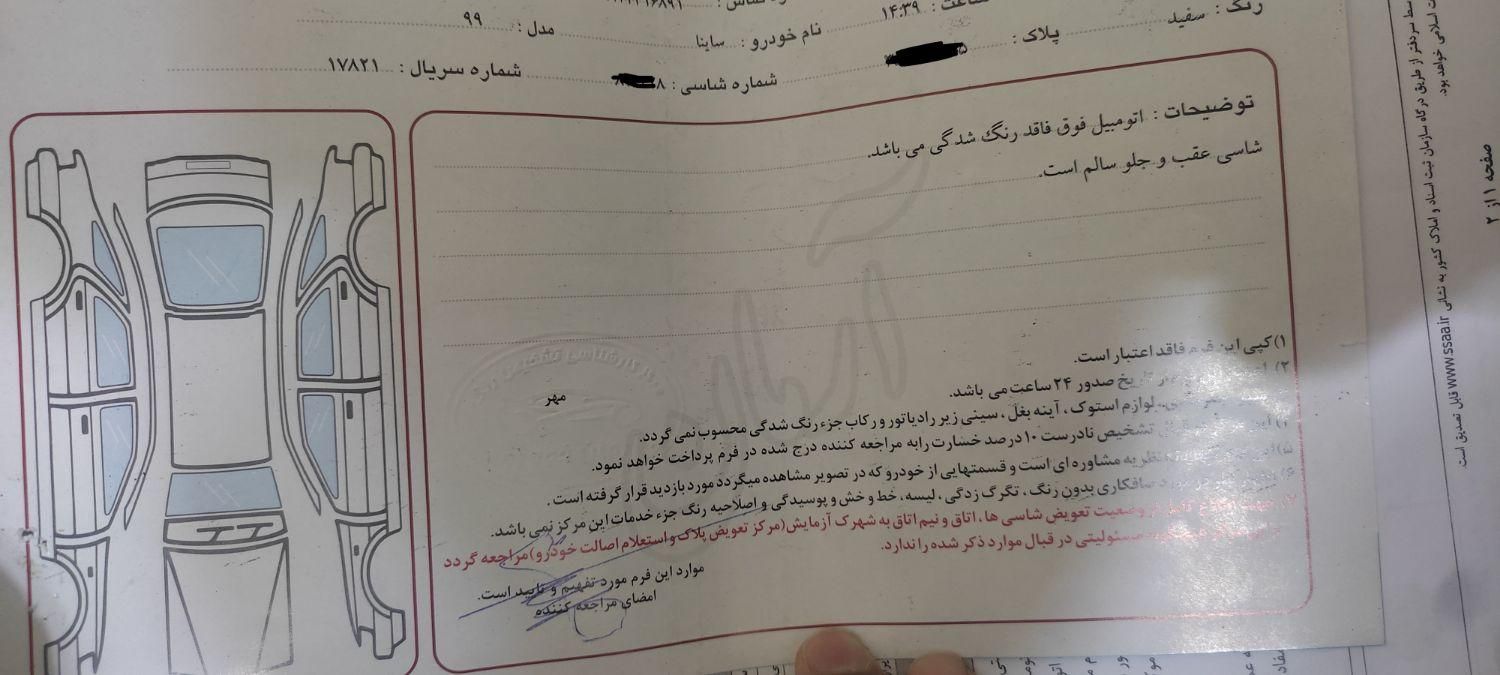 رنگ : سفید
ساعت : ۱۴:۳۹
پلاک :
نام خودرو : ساینا
مدل : ۹۹
شماره شاسی : ۸
شماره سریال : ۱۷۸۲۱
توضیحات : اتومبیل فوق فاقد رنگ شدگی می باشد.
شاسی عقب و جلو سالم است.
۱) کپی این فرم فاقد اعتبار است.
۲) تاریخ صدور ۲۴ ساعت می باشد.
لوازم استوک ، آینه بغل ، سینی زیر رادیاتور و رکاب جزء رنگ شدگی محسوب نمی گردد.
تشخیص نادرست ۱۰ درصد خسارت را به مراجعه کننده درج شده در فرم پرداخت خواهد نمود.
نظریه مشاوره ای است و قسمتهایی از خودرو که در تصویر مشاهده میگردد مورد بازدید قرار گرفته است.
صافکاری بدون رنگ ، تگرگ زدگی ، لیسه، خط و خش و پوسیدگی و اصلاحیه رنگ جزء خدمات این مرکز نمی باشد.
وضعیت تعویض شاسی ها ، اتاق و نیم اتاق به شهرک آزمایش(مرکز تعویض پلاک و استعلام اصالت خودرو) مراجعه گردد
مسئولیتی در قبال موارد ذکر شده را ندارد.
مهر
موارد این فرم مورد تفهیم و تایید است.
امضای مراجعه کننده
صفحه ۱ از ۲
سردفتر از طریق درگاه سازمان ثبت اسناد و املاک کشور به نشانی www.ssaa.ir قابل تصدیق است
اسلامی خواهد بود.